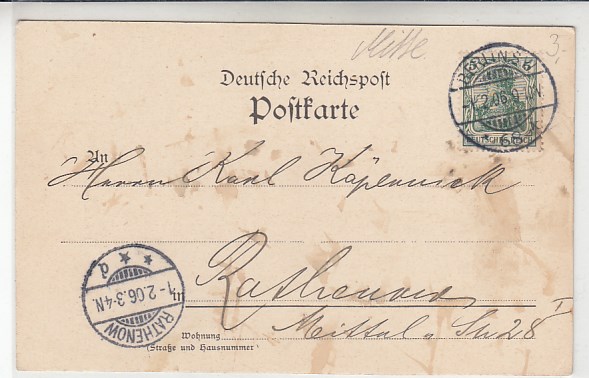 Mitte
3,-
Deutsche Reichspost
Postkarte
BERLIN S.W.
1.2.06.
DEUTSCHES REICH
An
Herrn Karl Käpernick
Rathenow
in
I
Mittel-Str 28
Wohnung
(Straße und Hausnummer)
RATHENOW
1-2.06.3-4N.
* * d